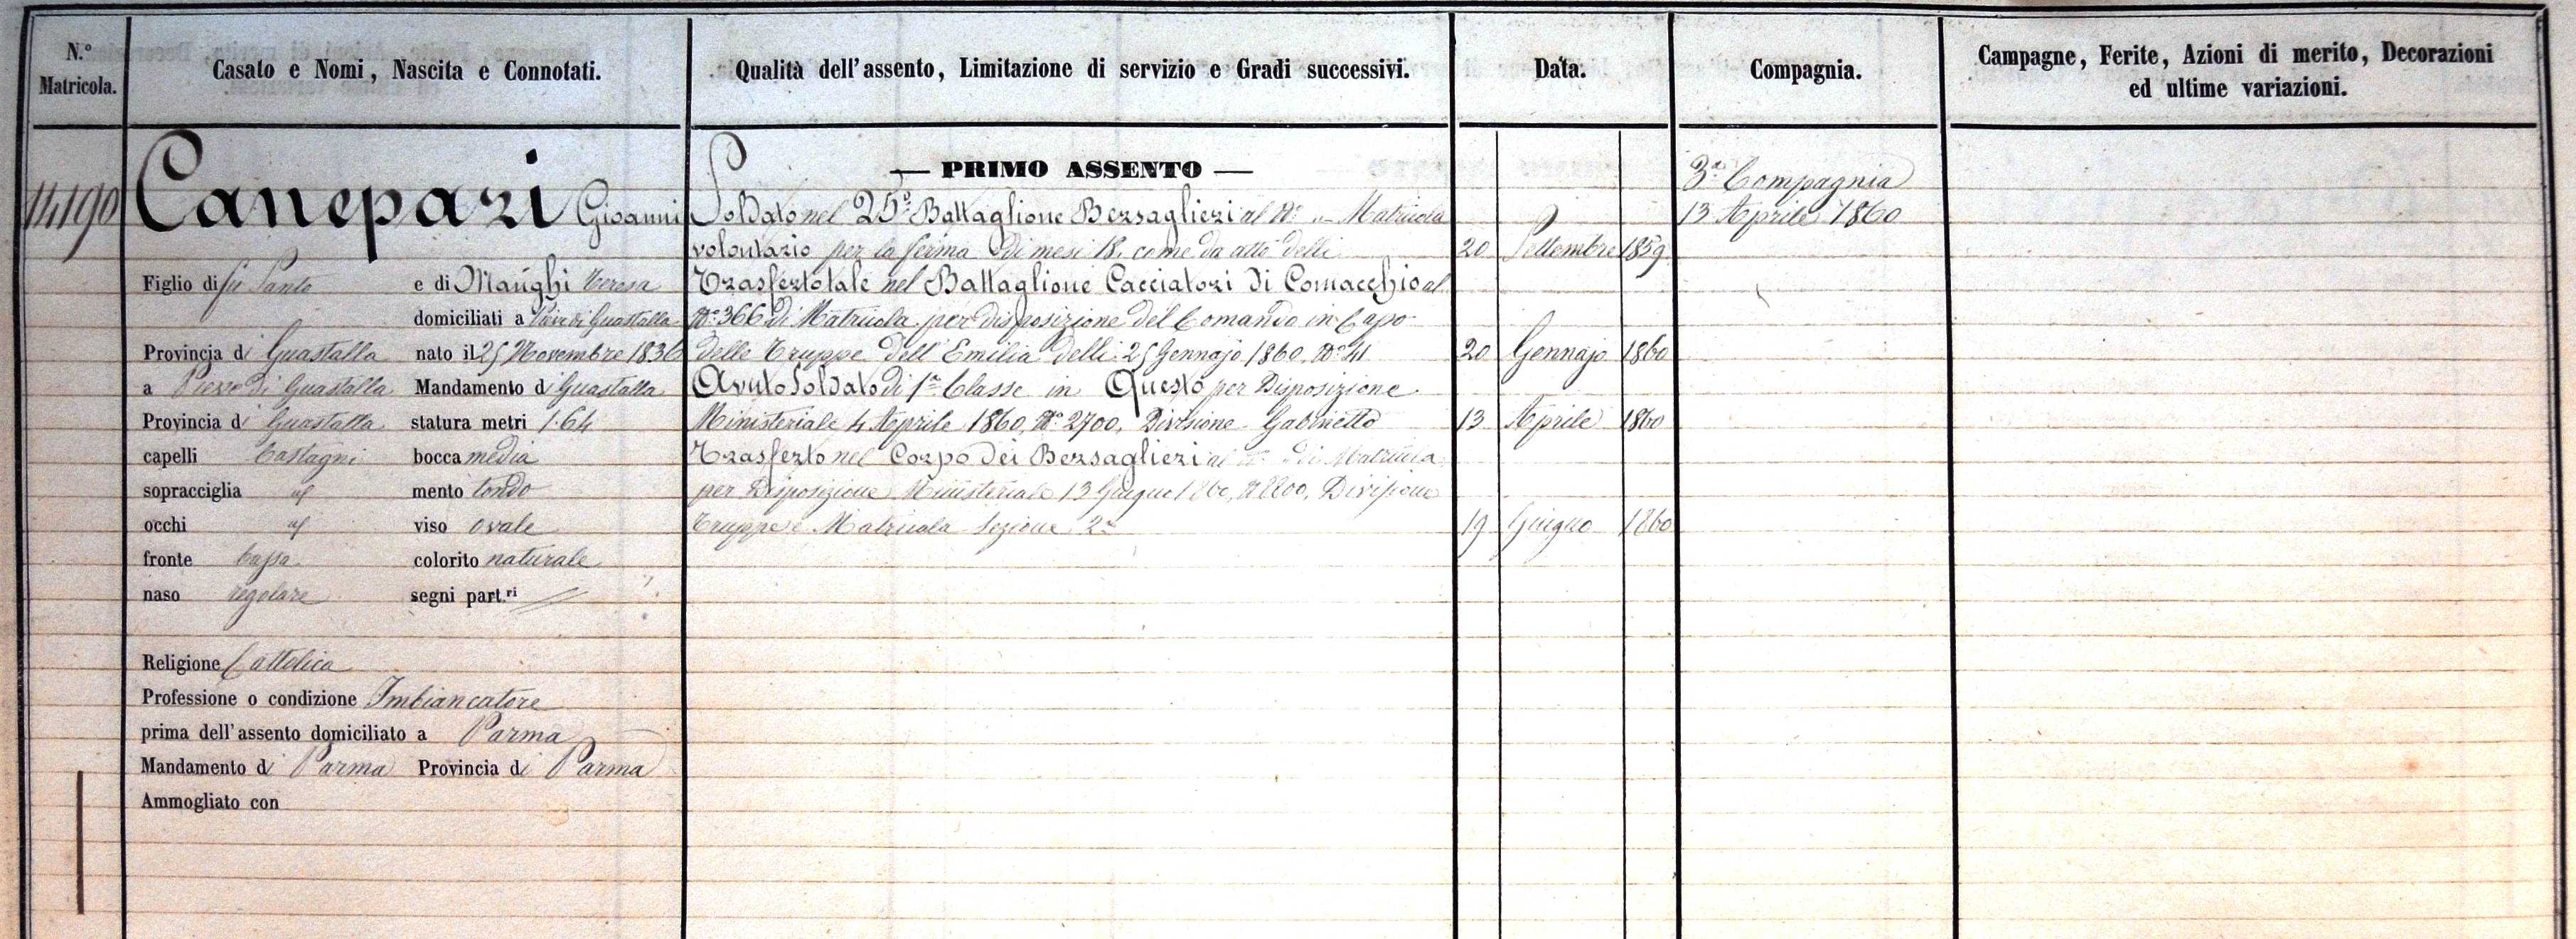 N.º Matricola.
Casato e Nomi, Nascita e Connotati.
Qualità dell'assento, Limitazione di servizio e Gradi successivi.
Data.
Compagnia.
Campagne, Ferite, Azioni di merito, Decorazioni
ed ultime variazioni.
14190
Canepari Giovanni
Figlio di fu Sante e di Manghi Teresa
domiciliati a Pieve di Guastalla
Provincia di Guastalla nato il 25 Novembre 1836
a Pieve di Guastalla Mandamento di Guastalla
Provincia di Guastalla statura metri 1.64
capelli Castagni bocca media
sopracciglia id mento tondo
occhi id viso ovale
fronte bassa colorito naturale
naso regolare segni part.ri
Religione Cattolica
Professione o condizione Imbiancatore
prima dell'assento domiciliato a Parma
Mandamento di Parma Provincia di Parma
Ammogliato con
— PRIMO ASSENTO —
Soldato nel 25º Battaglione Bersaglieri al Nº „ Matricola
volontario per la ferma di mesi 18. come da atto delli 20 Settembre 1859
Trasferto tale nel Battaglione Cacciatori di Comacchio al
Nº 366 di Matricola per disposizione del Comando in Capo
delle Truppe dell'Emilia delli 25 Gennajo 1860, Nº 41 20 Gennajo 1860
Avuto Soldato di 1ª Classe in Questo per Disposizione
Ministeriale 4 Aprile 1860, Nº 2700, Divisione Gabinetto 13 Aprile 1860
Trasferto nel Corpo dei Bersaglieri al Nº „ di Matricola
per Disposizione Ministeriale 13 Giugno 1860, N 8200, Divisione
Truppe e Matricola Sezione 2ª 19 Giugno 1860
3ª Compagnia
13 Aprile 1860